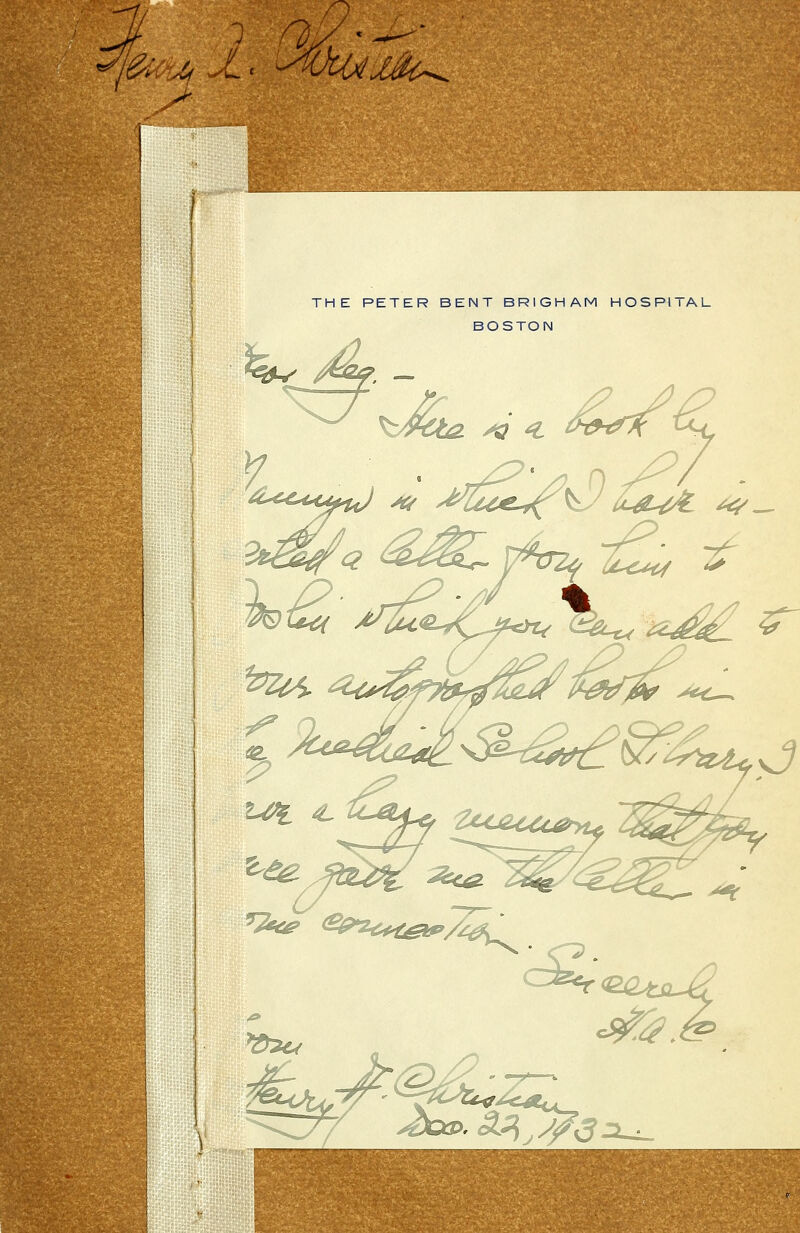 Henry A. Christian
THE PETER BENT BRIGHAM HOSPITAL
BOSTON
Dear Reg. –
Here is a book by
Naunyn in which I have in-
serted a letter from him to
Joslin which you can add to
your autographed books in
the Medical School Library. I
have a hazy memory that you
once gave me the letter in
some connection.
Sincerely
H.A.C.
From
Henry A. Christian
Dec. 22, 1932.